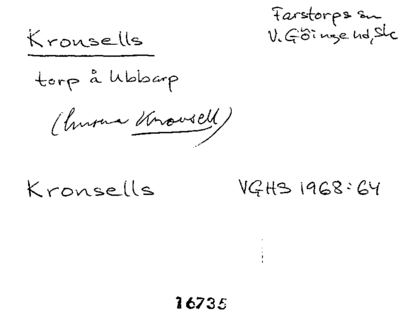 Kronsells
Farstorps sn
V. Göinge hd, Sk
torp å Ubbarp
(husma Kronsell)
Kronsells
VGHS 1968:64
16735